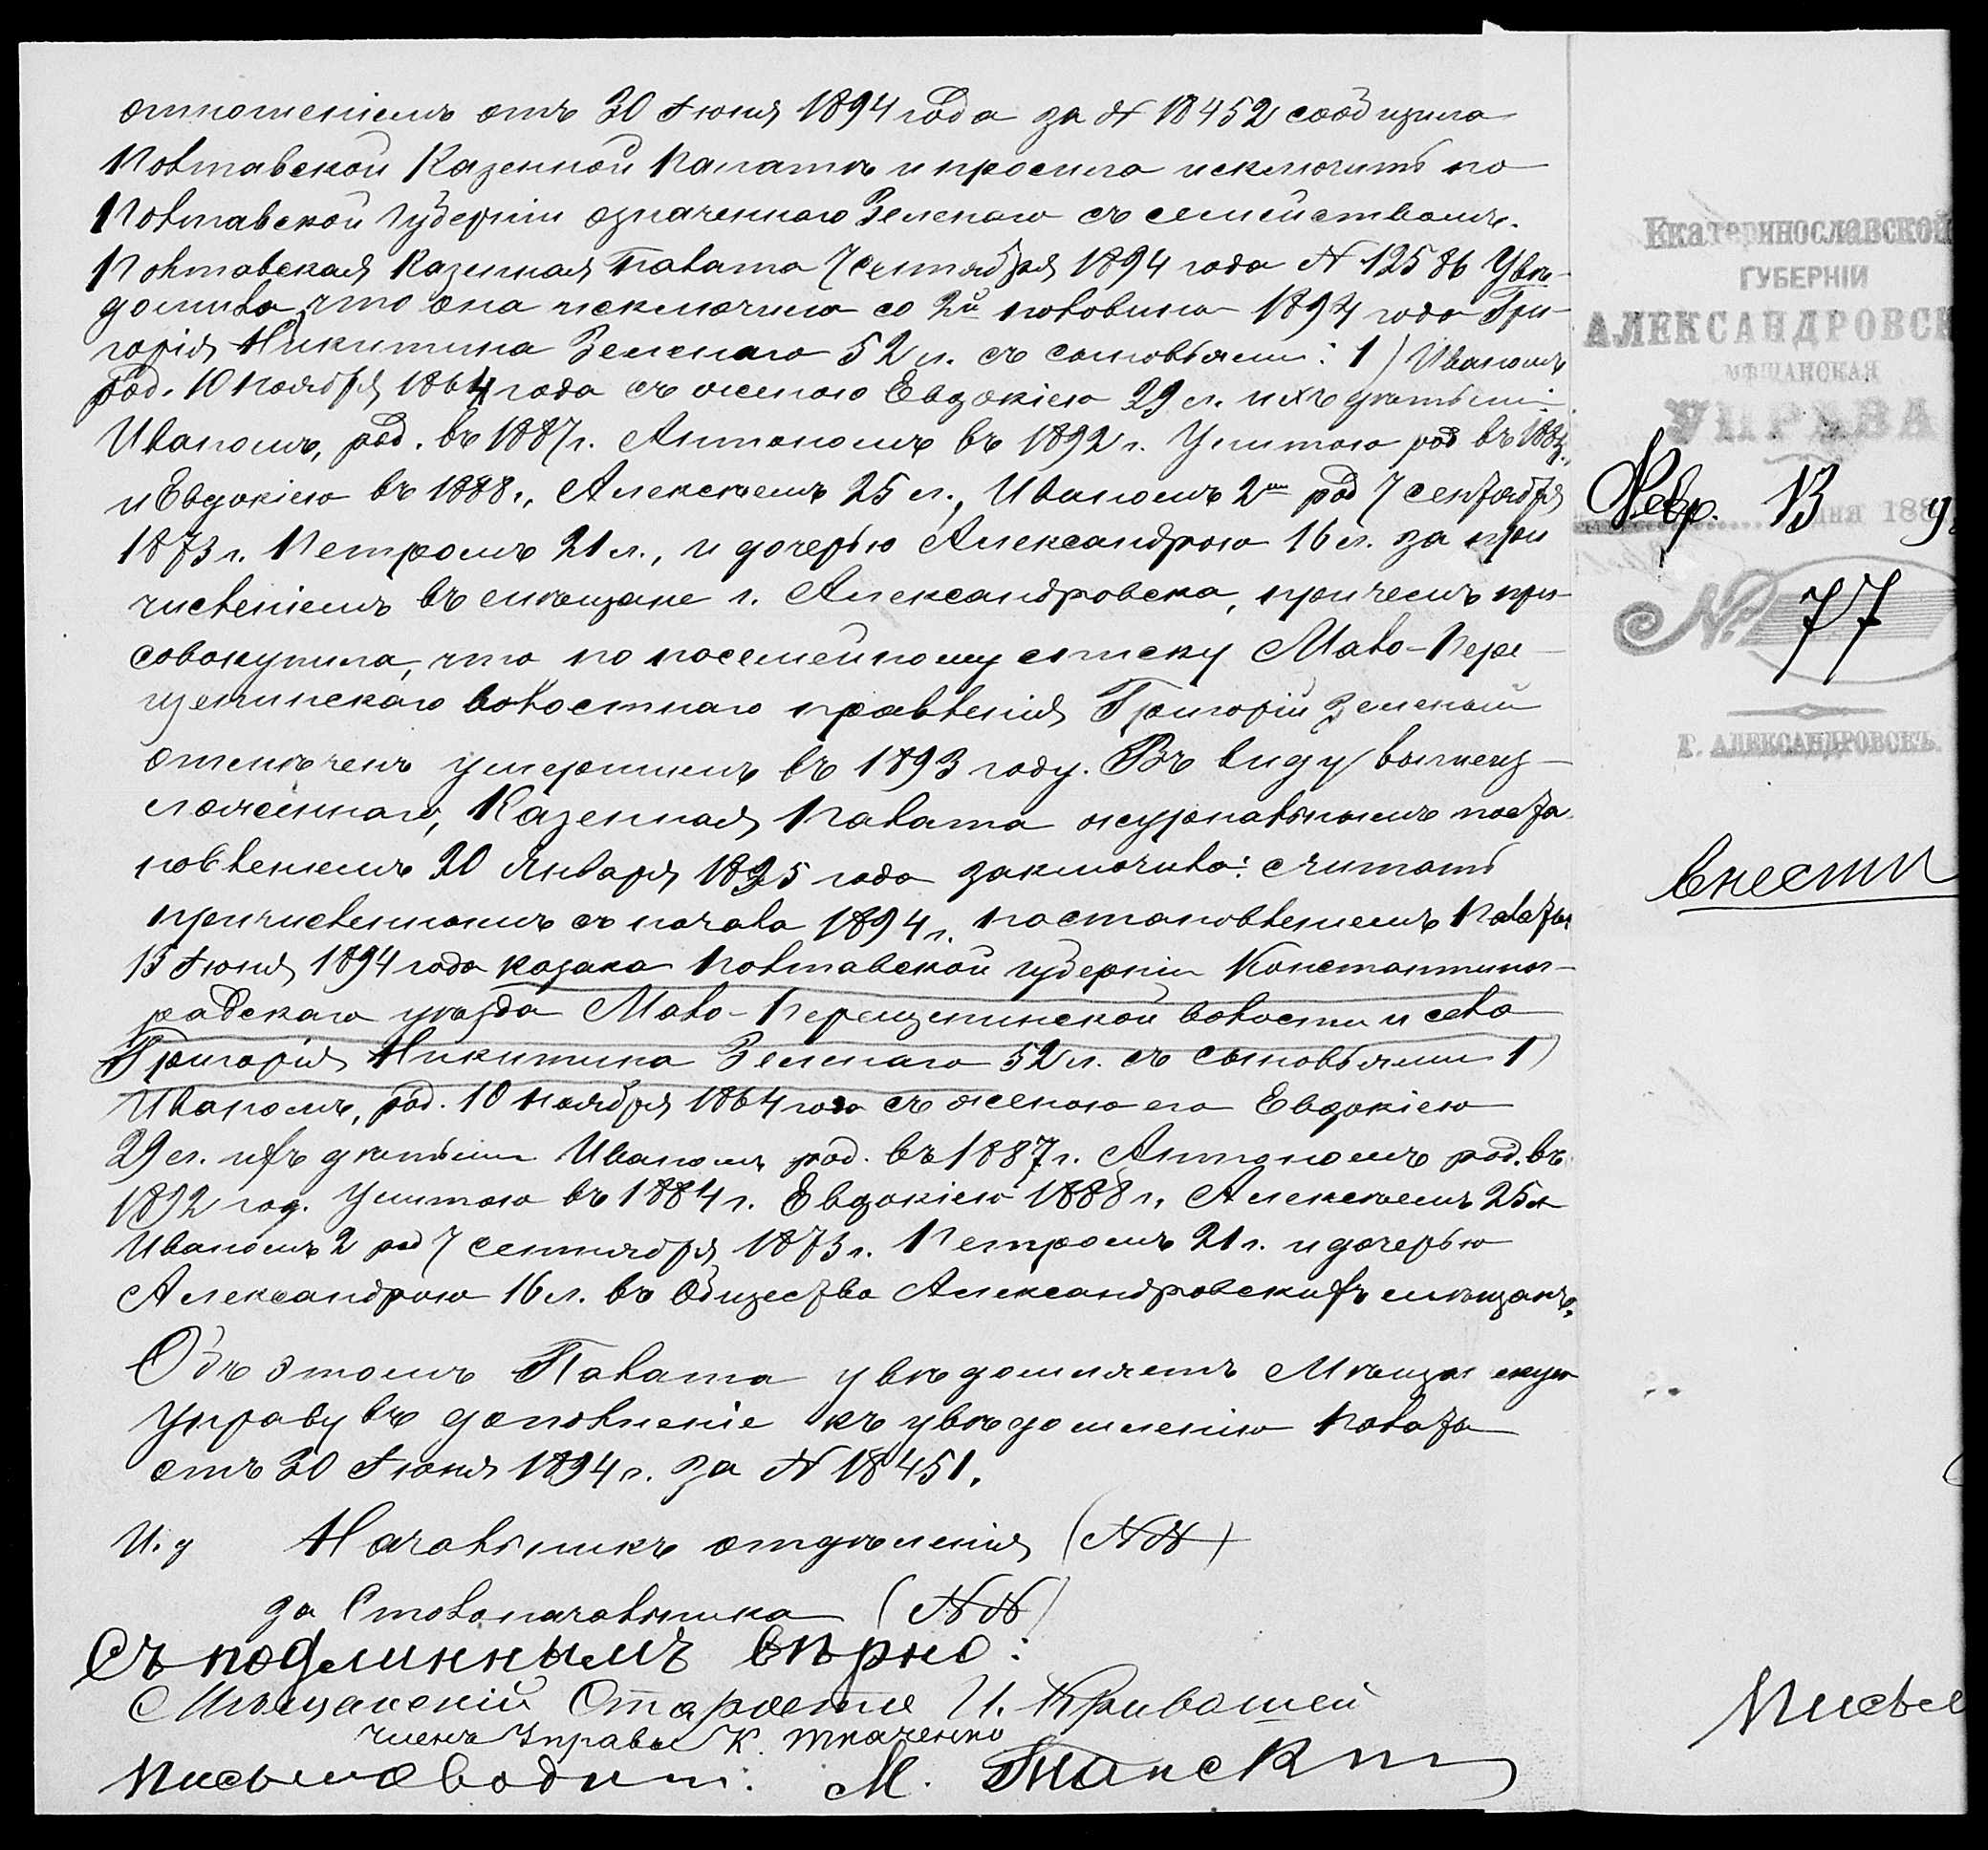 отношеніемъ отъ 30 Іюня 1894 года за № 18452 сообщила
Полтавской Казенной Палатѣ и просила исключить по
Полтавской Губерніи означеннаго Зеленаго съ семействомъ.
Полтавская Казенная Палата 7 Сентября 1894 года № 12586 Увѣ-
домила, что она исключила со 2й половины 1894 года Гри-
горія Никитина Зеленаго 52 л. съ сыновьями: 1) Иваномъ
род. 10 Ноября 1864 года съ женою Евдокіею 29 л. ихъ дѣтьми:
Иваномъ, род. въ 1887 г. Антономъ въ 1892 г. Улитою род въ 1884 г.,
и Евдокіею въ 1888 г., Алексѣемъ 25 л., Иваномъ 2мъ род 7 сентября
1873 г. Петромъ 21 л., и дочерью Александрою 16 л. за при
численіемъ въ мѣщане г. Александровска, причемъ при-
совокупила, что по посемейному списку Мало-Пере-
щепинскаго волостнаго правленія Григорій Зеленый
отмѣченъ умершимъ въ 1893 году. Въ виду вышеиз-
ложеннаго, Казенная Палата журнальнымъ поста
новленіемъ 20 Января 1895 года заключила: считать
причисленнымъ съ начала 1894 г. постановленіемъ Палаты
13 Іюня 1894 года козака Полтавской губерніи Константино-
градскаго уѣзда Мало-Перещепинской волости и села
Григорія Никитина Зеленаго 52 л. съ сыновьями 1)
Иваномъ, род. 10 Ноября 1864 года съ женою его Евдокіею
29 л. ихъ дѣтьми Иваномъ род. въ 1887 г. Антономъ род. въ
1892 год. Улитою въ 1884 г. Евдокіею 1888 г., Алексѣемъ 25 л
Иваномъ 2 род 7 Сентября 1873 г. Петромъ 21 г. и дочерью
Александрою 16 л. въ Общество Александровскихъ мѣщанъ.
Объ этомъ Палата увѣдомляетъ Мѣщанскую
Управу въ дополненіе къ увѣдомленію Палаты
отъ 30 Іюня 1894 г. за № 18451.
И. д Начальникъ отдѣленія (NN)
за Столоначальника (NN)
Съ подлиннымъ вѣрно:
Мѣщанскій Староста И. Кривошей
Членъ Управы К. Ткаченко
Письмоводит: М. Танскій
Екатеринославской
ГУБЕРНІИ
АЛЕКСАНДРОВСК
МѢЩАНСКАЯ
УПРАВА
Февр. 13 дня 188 9
№ 77
Г. АЛЕКСАНДРОВСКЪ.
внести
Письм